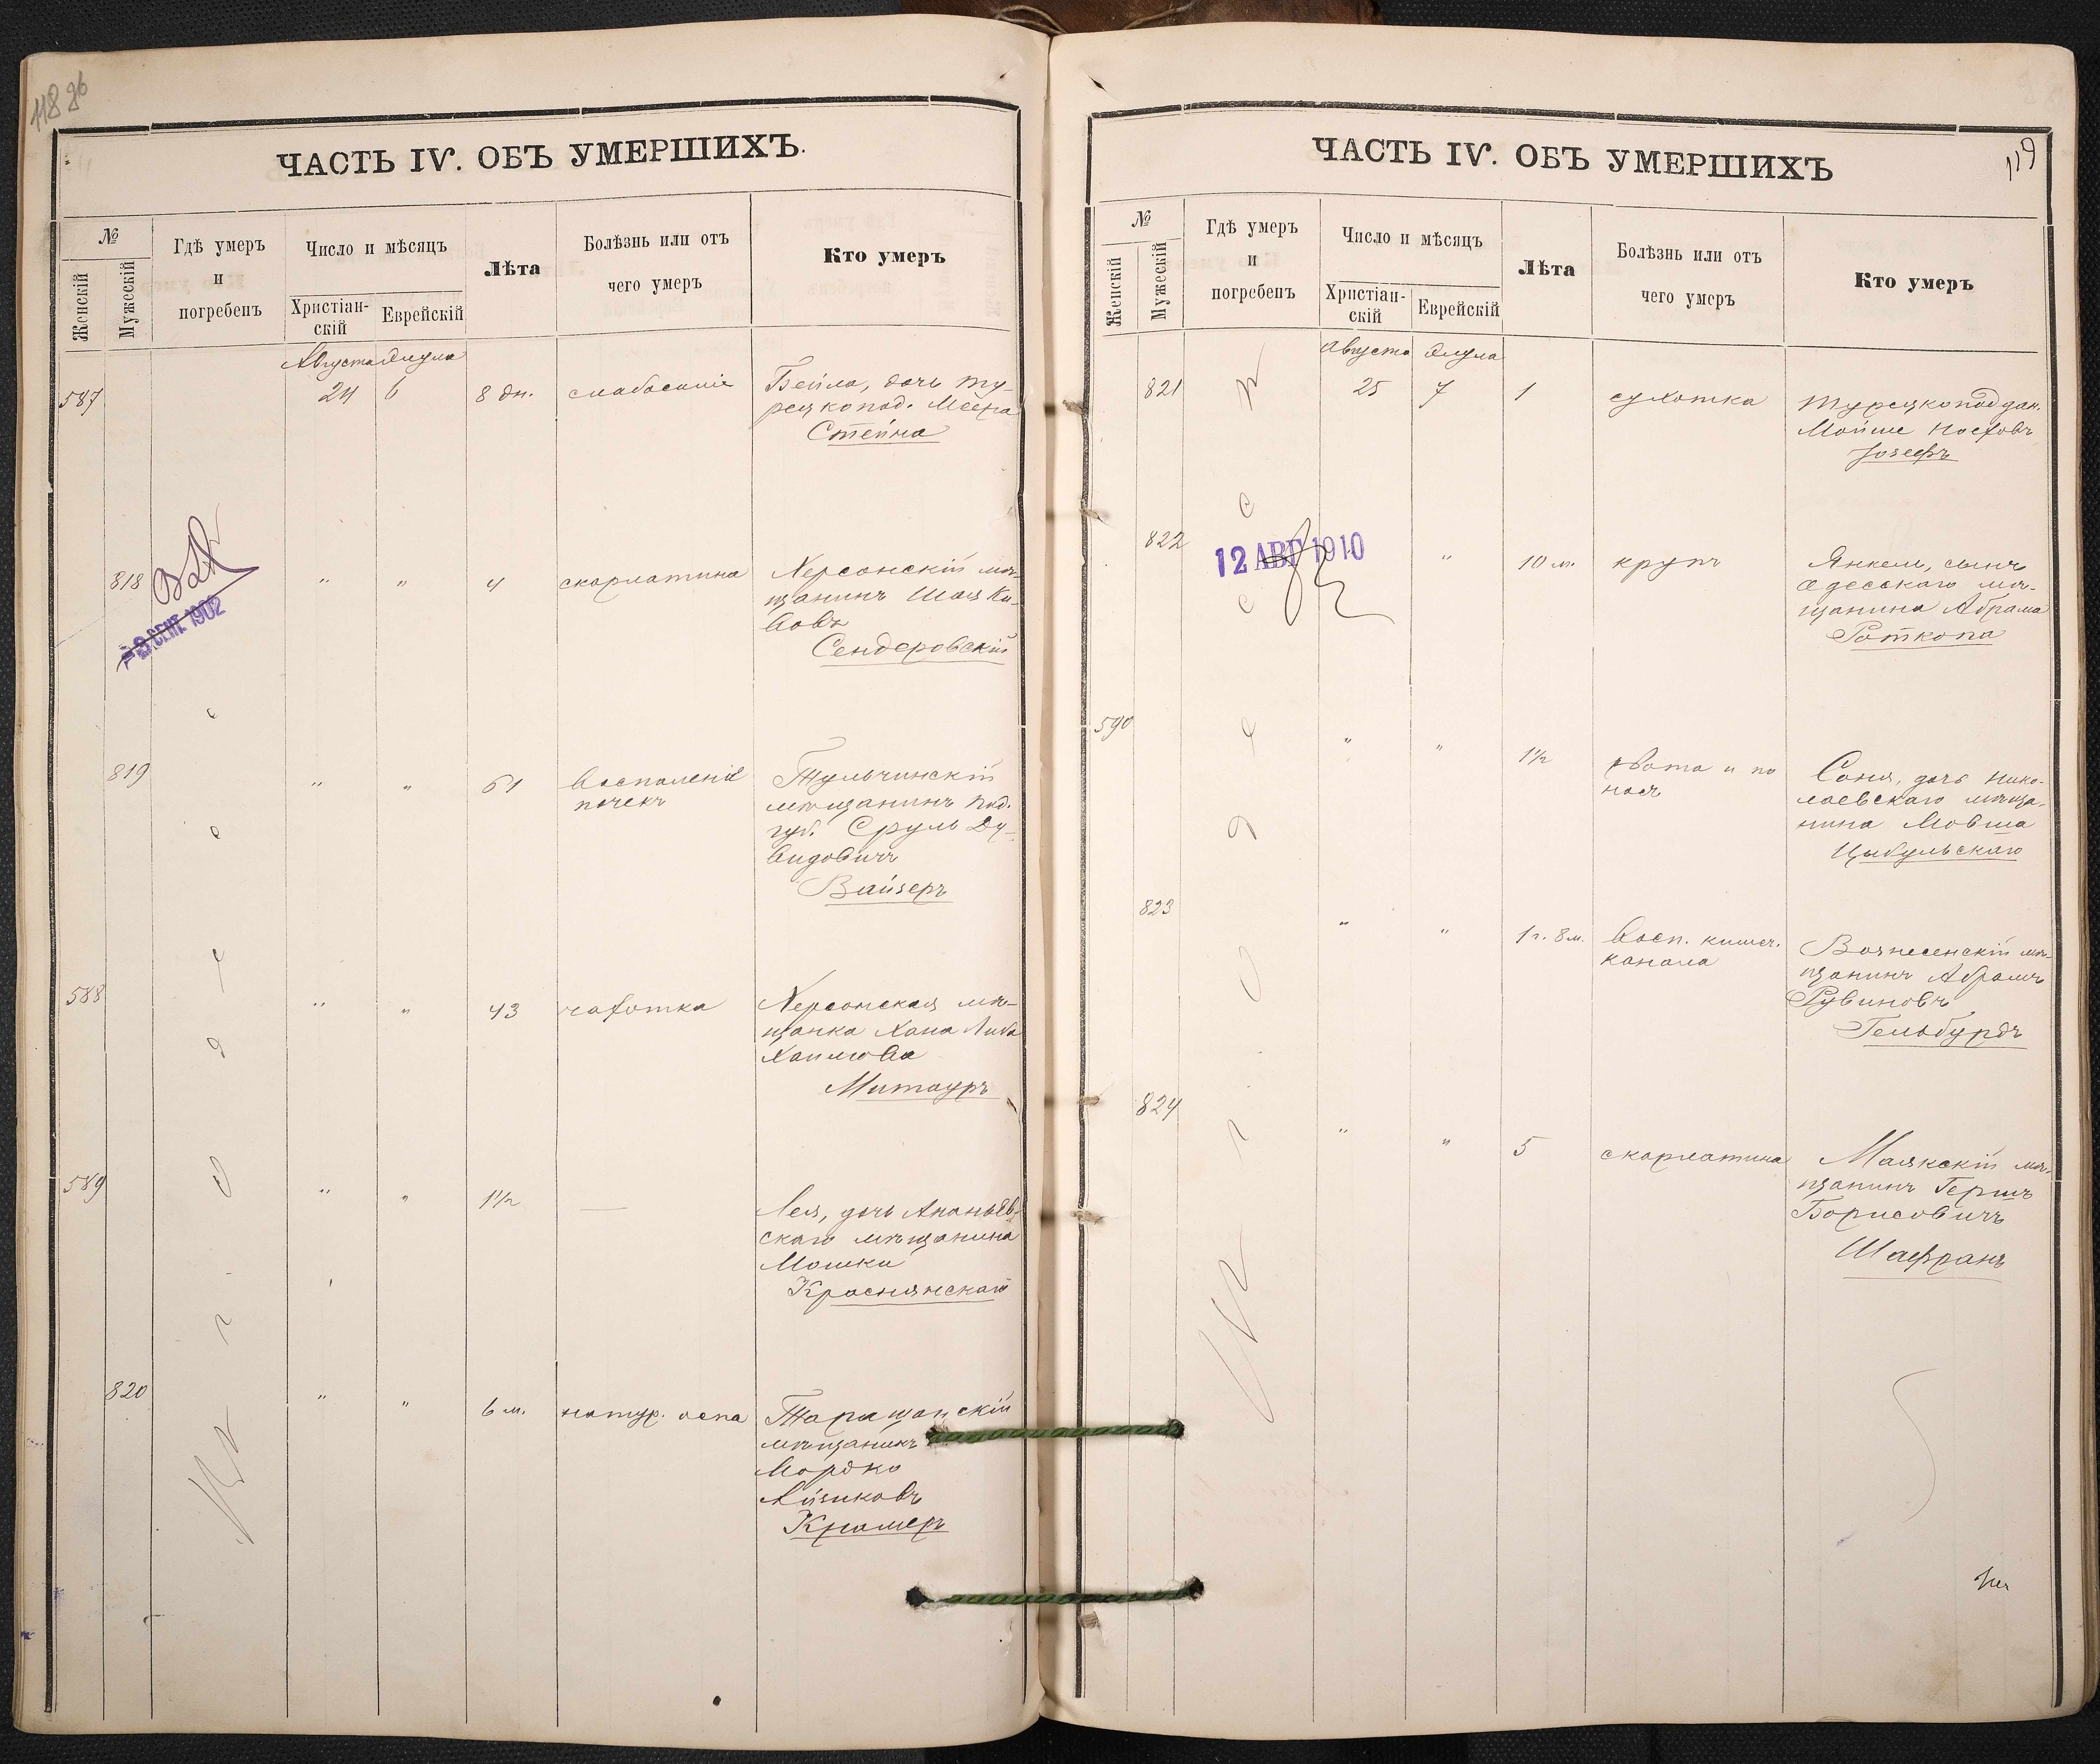 118 об
ЧАСТЬ IV. ОБЪ УМЕРШИХЪ.
№
Женскій
Мужескій
Гдѣ умеръ
и
погребенъ
Число и мѣсяцъ
Христіан-
скій
Еврейскій
Лѣта
Болѣзнь или отъ
чего умеръ
Кто умеръ
Августа Элула
587
24 6 8 дн. слабосиліе
Бейла, дочь ту-
рецкопод. Меера
Стейна
818
9 СЕНТ. 1902
" " 4 скарлатина
Херсонскій мѣ-
щанинъ Шая Ки-
вовъ
Сендеровскій
819
" " 61 воспаленіе
почекъ
Тульчинскій
мѣщанинъ Под.
губ. Сруль Ду-
видовичъ
Вайзеръ
588
" " 43 чахотка
Херсонская мѣ-
щанка Хана Либа
Хаимова
Митауръ
589
" " 1½ —
Лея, дочь Ананьев-
скаго мѣщанина
Мошки
Краснянскаго
820
" " 6 м. натур. оспа
Таращанскій
мѣщанинъ
Мордко
Айзиковъ
Крамеръ
Въ г. Одессѣ
119
ЧАСТЬ IV. ОБЪ УМЕРШИХЪ
№
Женскій
Мужескій
Гдѣ умеръ
и
погребенъ
Число и мѣсяцъ
Христіан-
скій
Еврейскій
Лѣта
Болѣзнь или отъ
чего умеръ
Кто умеръ
Августа Элула
821
25 7 1 сухотка
Турецкоподдан.
Мойше Іосифовъ
Іозефъ
822
12 АВГ 1910
" 10 м. крупъ
Янкель, сынъ
Одесскаго мѣ-
щанина Абрама
Роткопа
590
" " 1½ рвота и по
носъ
Соня, дочь Нико-
лаевскаго мѣща-
нина Мовша
Цыбульскаго
823
" " 1 г. 8 м. Восп. кишеч.
канала
Вознесенскій мѣ-
щанинъ Абрамъ
Рувиновъ
Гельбурдъ
824
" " 5 скарлатина
Маякскій мѣ-
щанинъ Гершъ
Борисовичъ
Шафранъ
Въ г. Одессѣ